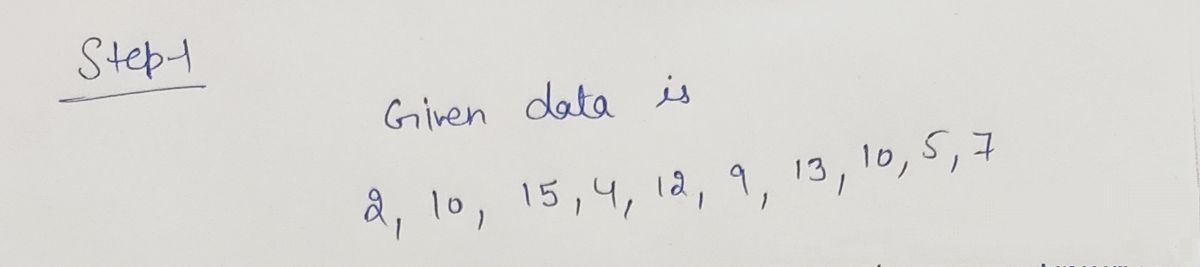 Step-1
Given data is
2, 10, 15, 4, 12, 9, 13, 10, 5, 7